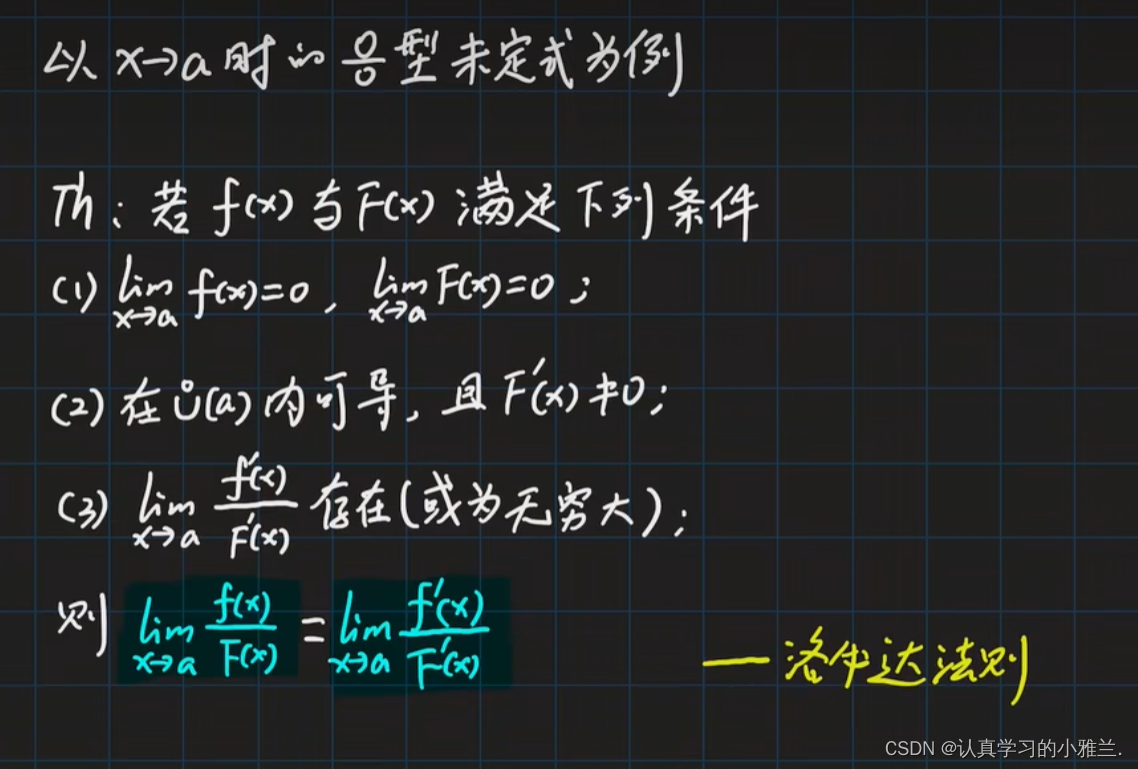 以 x→a 时的 0/0 型未定式为例
Th: 若 f(x) 与 F(x) 满足下列条件
(1) lim x→a f(x)=0, lim x→a F(x)=0;
(2) 在 Ů(a) 内可导, 且 F'(x)≠0;
(3) lim x→a f'(x)/F'(x) 存在(或为无穷大);
则 lim x→a f(x)/F(x) = lim x→a f'(x)/F'(x)
— 洛必达法则
CSDN @认真学习的小雅兰.